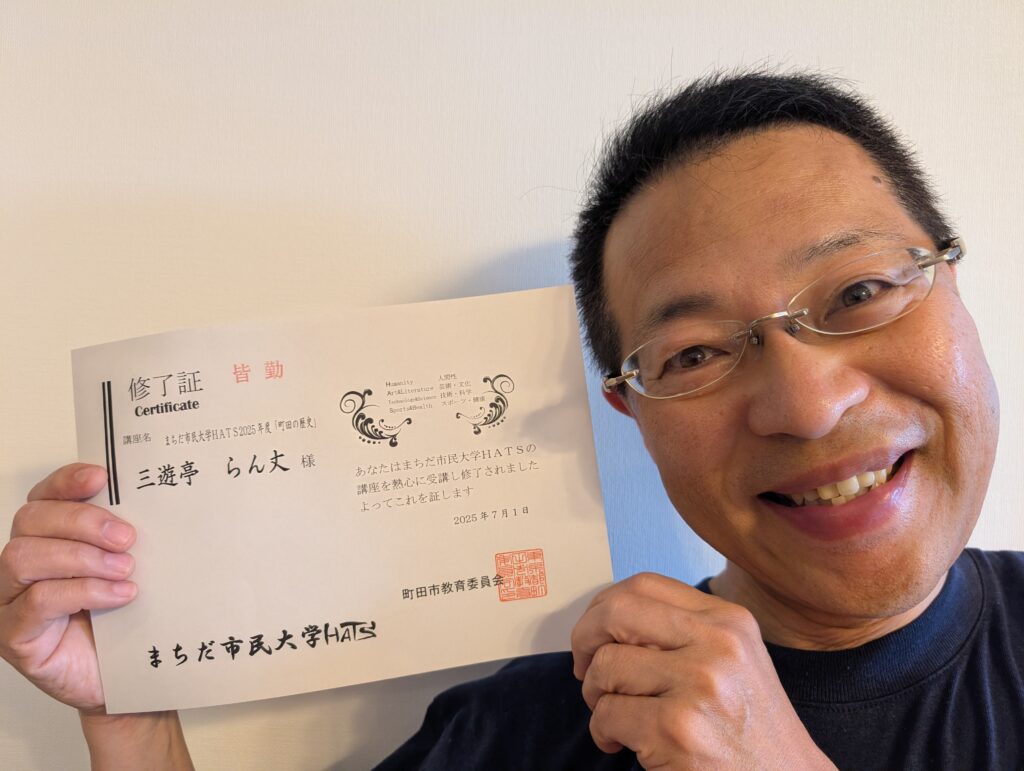 修了証 皆勤
Certificate
講座名 まちだ市民大学HATS2025年度「町田の歴史」
三遊亭 らん丈 様
Humanity 人間性
Art&Literature 芸術・文化
Technology&Science 技術・科学
Sports&Health スポーツ・健康
あなたはまちだ市民大学HATSの
講座を熱心に受講し修了されました
よってこれを証します
2025年7月1日
町田市教育委員会
まちだ市民大学HATS